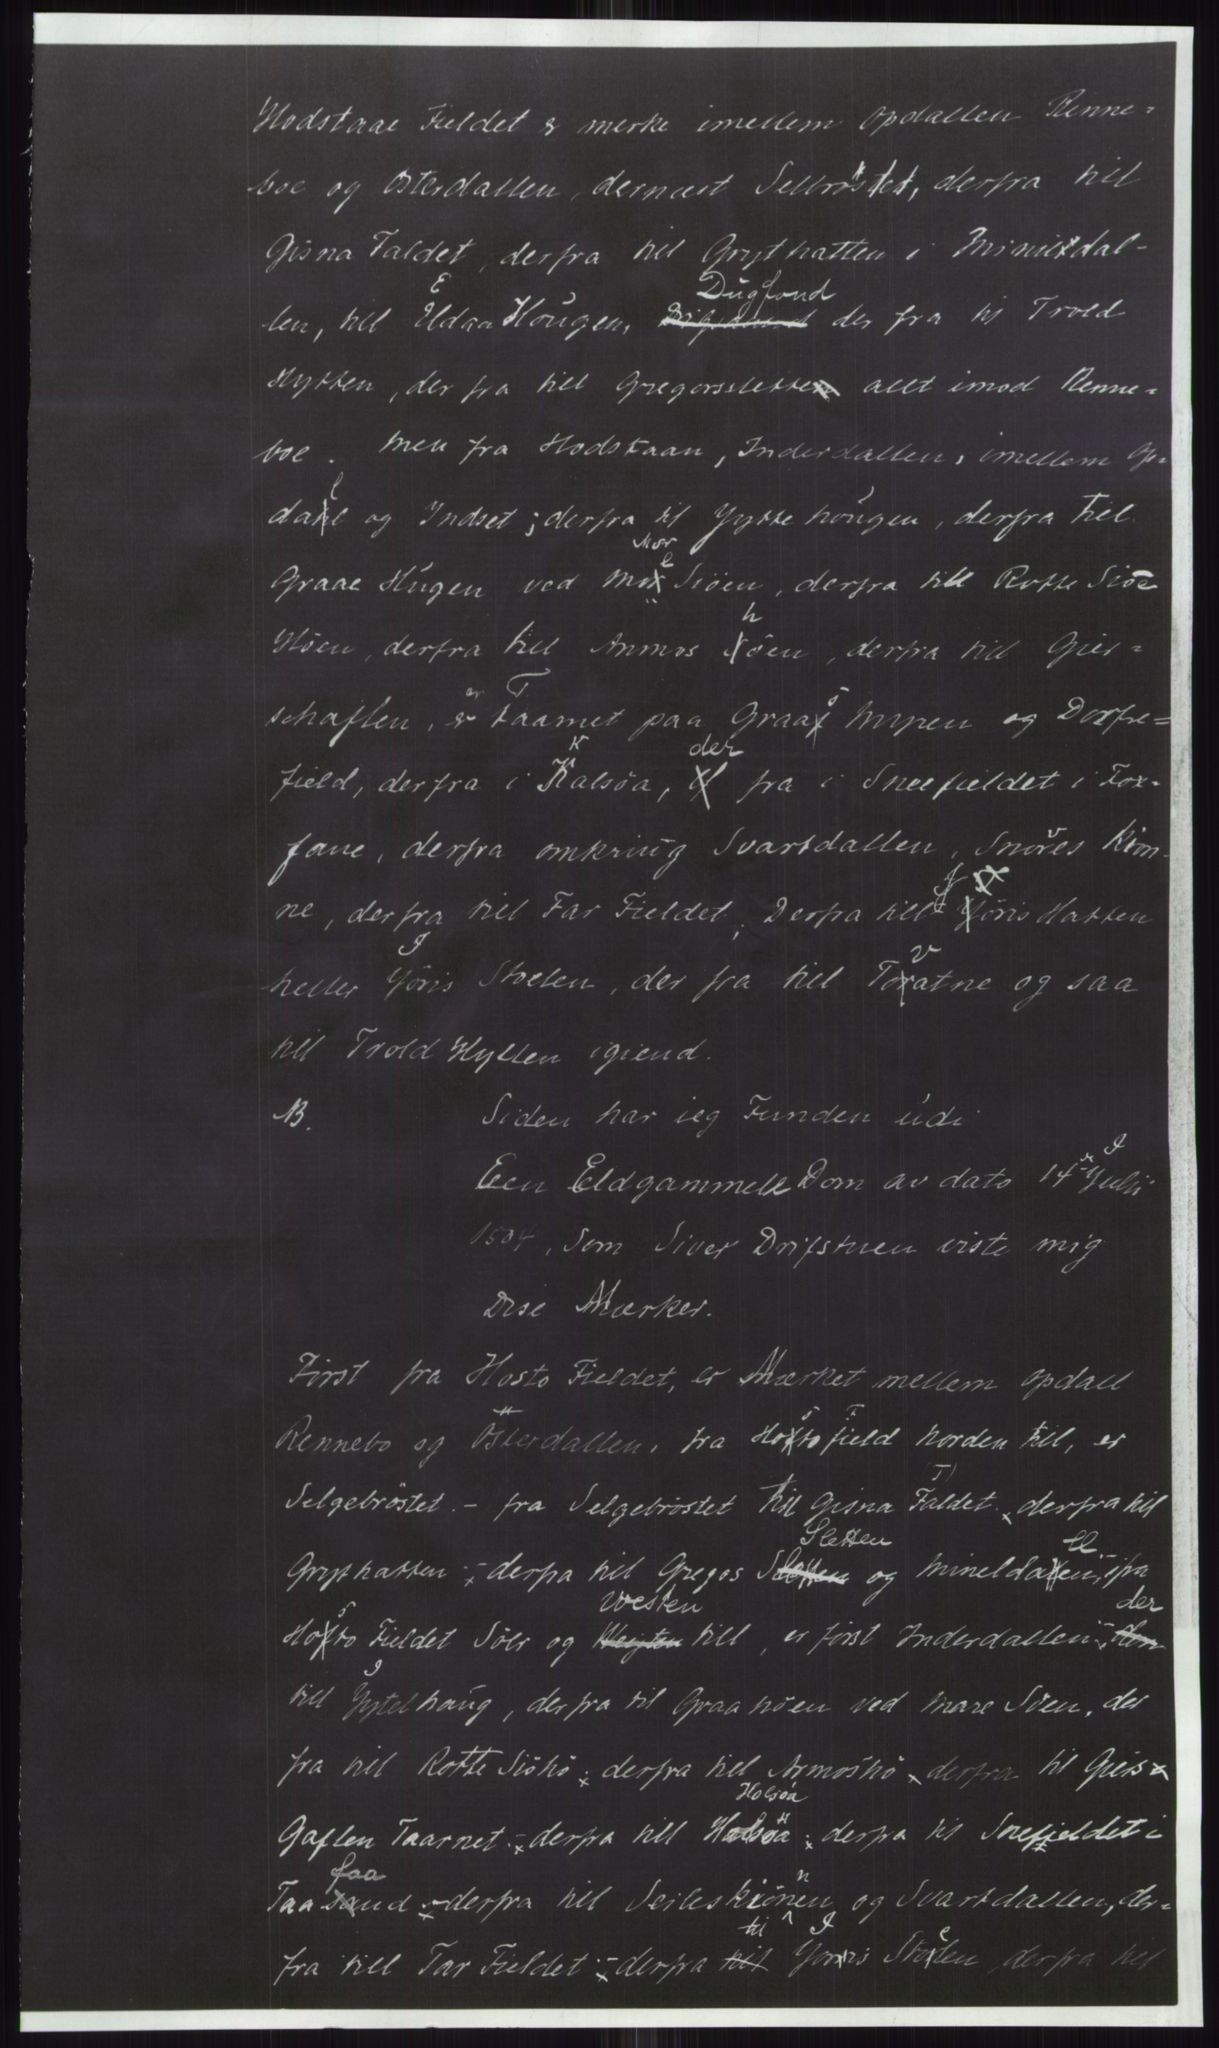 Hodstaae Fieldet er merke imellem Opdallen Renne-
boe og Østerdallen, dernæst Selbröstet, derfra till
Gisna Faldet, derfra till Grythatten i Mimildal-
len, till Eldaa Hougen, Dugfond der fra til Trold
Hytten, der fra till Gregersslette allt imod Renne-
boe. Men fra Hodstaan, Inderdallen, imellem Op-
dall og Indset; derfra til Jytte hougen, derfra till
Graae Hugen ved Mor Siöen, derfra till Rotte Siöe
Höen, derfra till Anmos höen, derfra till Gier-
schaflen, er Taarnet paa Graas hupen og Dorfre-
field, derfra i Kalsöa, der fra i Sneefieldet i Fox-
fone, derfra omkring Svartdallen, Snoves Kiön-
ne, derfra till Far Fieldet, Derfra till Jöris Hatten
heller Jöris Stoelen, der fra till Tovatne og saa
till Trold Hytten igiend.
NB. Siden har ieg Funden udi
Een Eldgammell Dom av dato 14de Julii
1504, Som Siver Drifstuen viste mig
Dise Mærker.
Först fra Hosto Fieldet, er Mærket mellem Opdall
Rennebo og Österdallen, fra Hosto field norden till, er
Selgebröstet - fra Selgebröstet till Gisna Faldet, derfra till
Grythatten - derfra till Gregos Sletten og Mineldallen, ifra
Hosto Fieldet Sölr og Westen till, er först Inderdallen - der
till Jytelhaug, derfra til Graahöen ved Mare Söen, der
fra till Rotte Siöhö, derfra till Armoshö, derfra til Giers
Gaflen Taarnet - derfra till Holsöa, derfra til Snefieldet i
Taa faa - derfra till Seileskiönen og Svartdallen, der-
fra till Far Fieldet - derfra til Joris Stolen derfra till